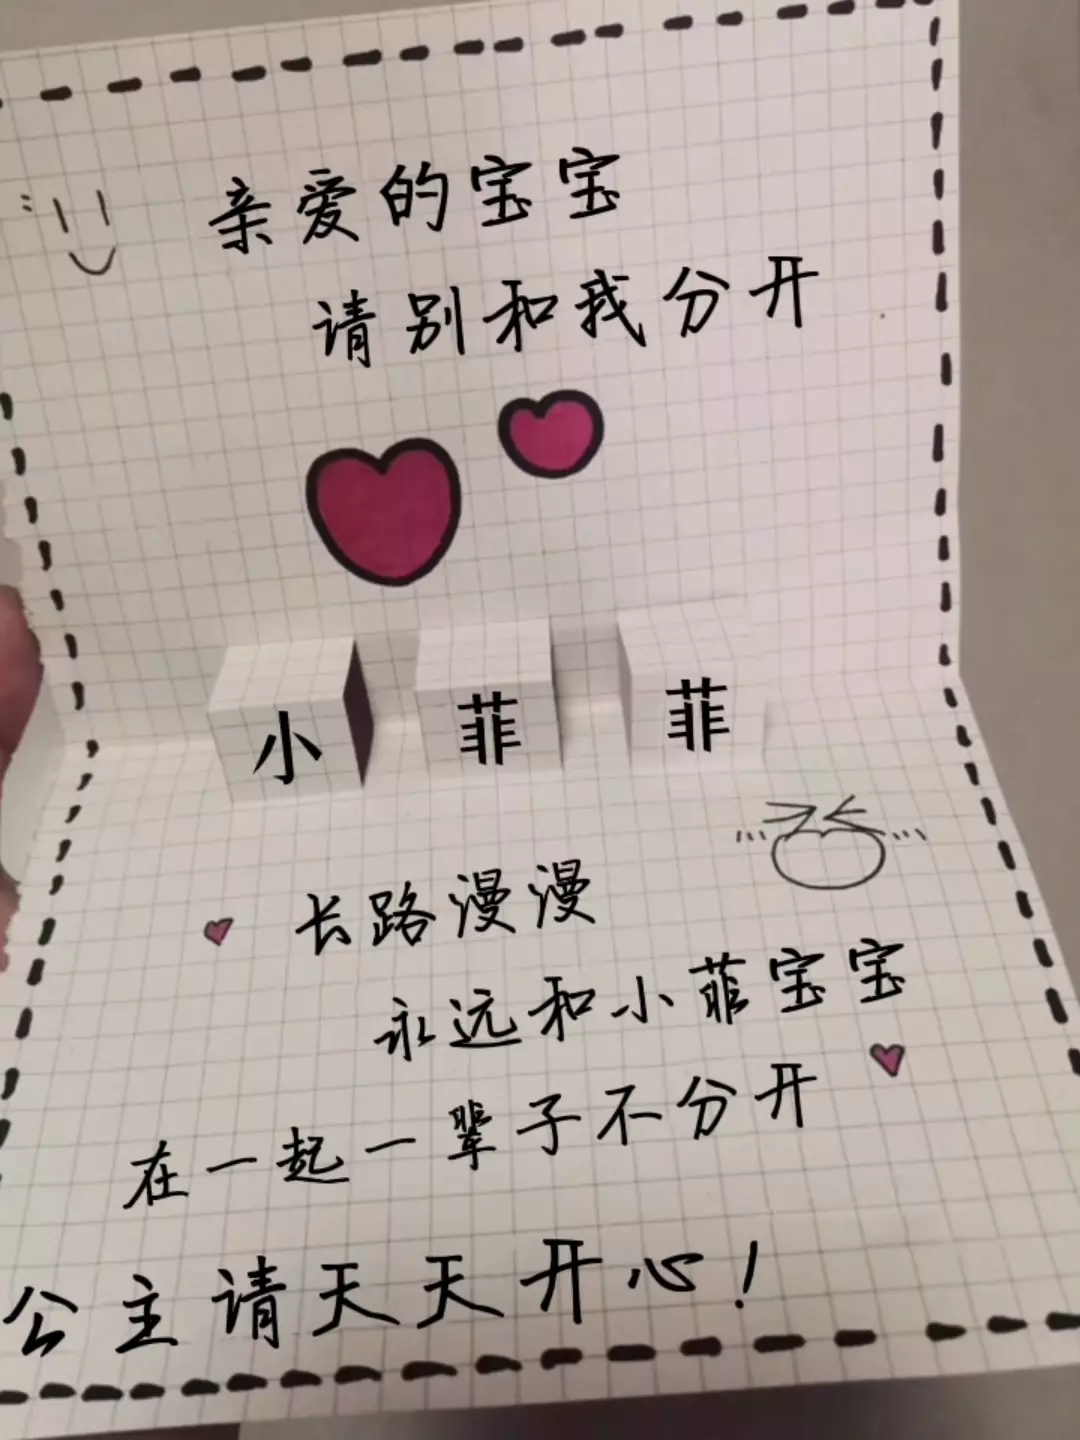 亲爱的宝宝
请别和我分开
小菲菲
长路漫漫
永远和小菲宝宝
在一起一辈子不分开
公主请天天开心！